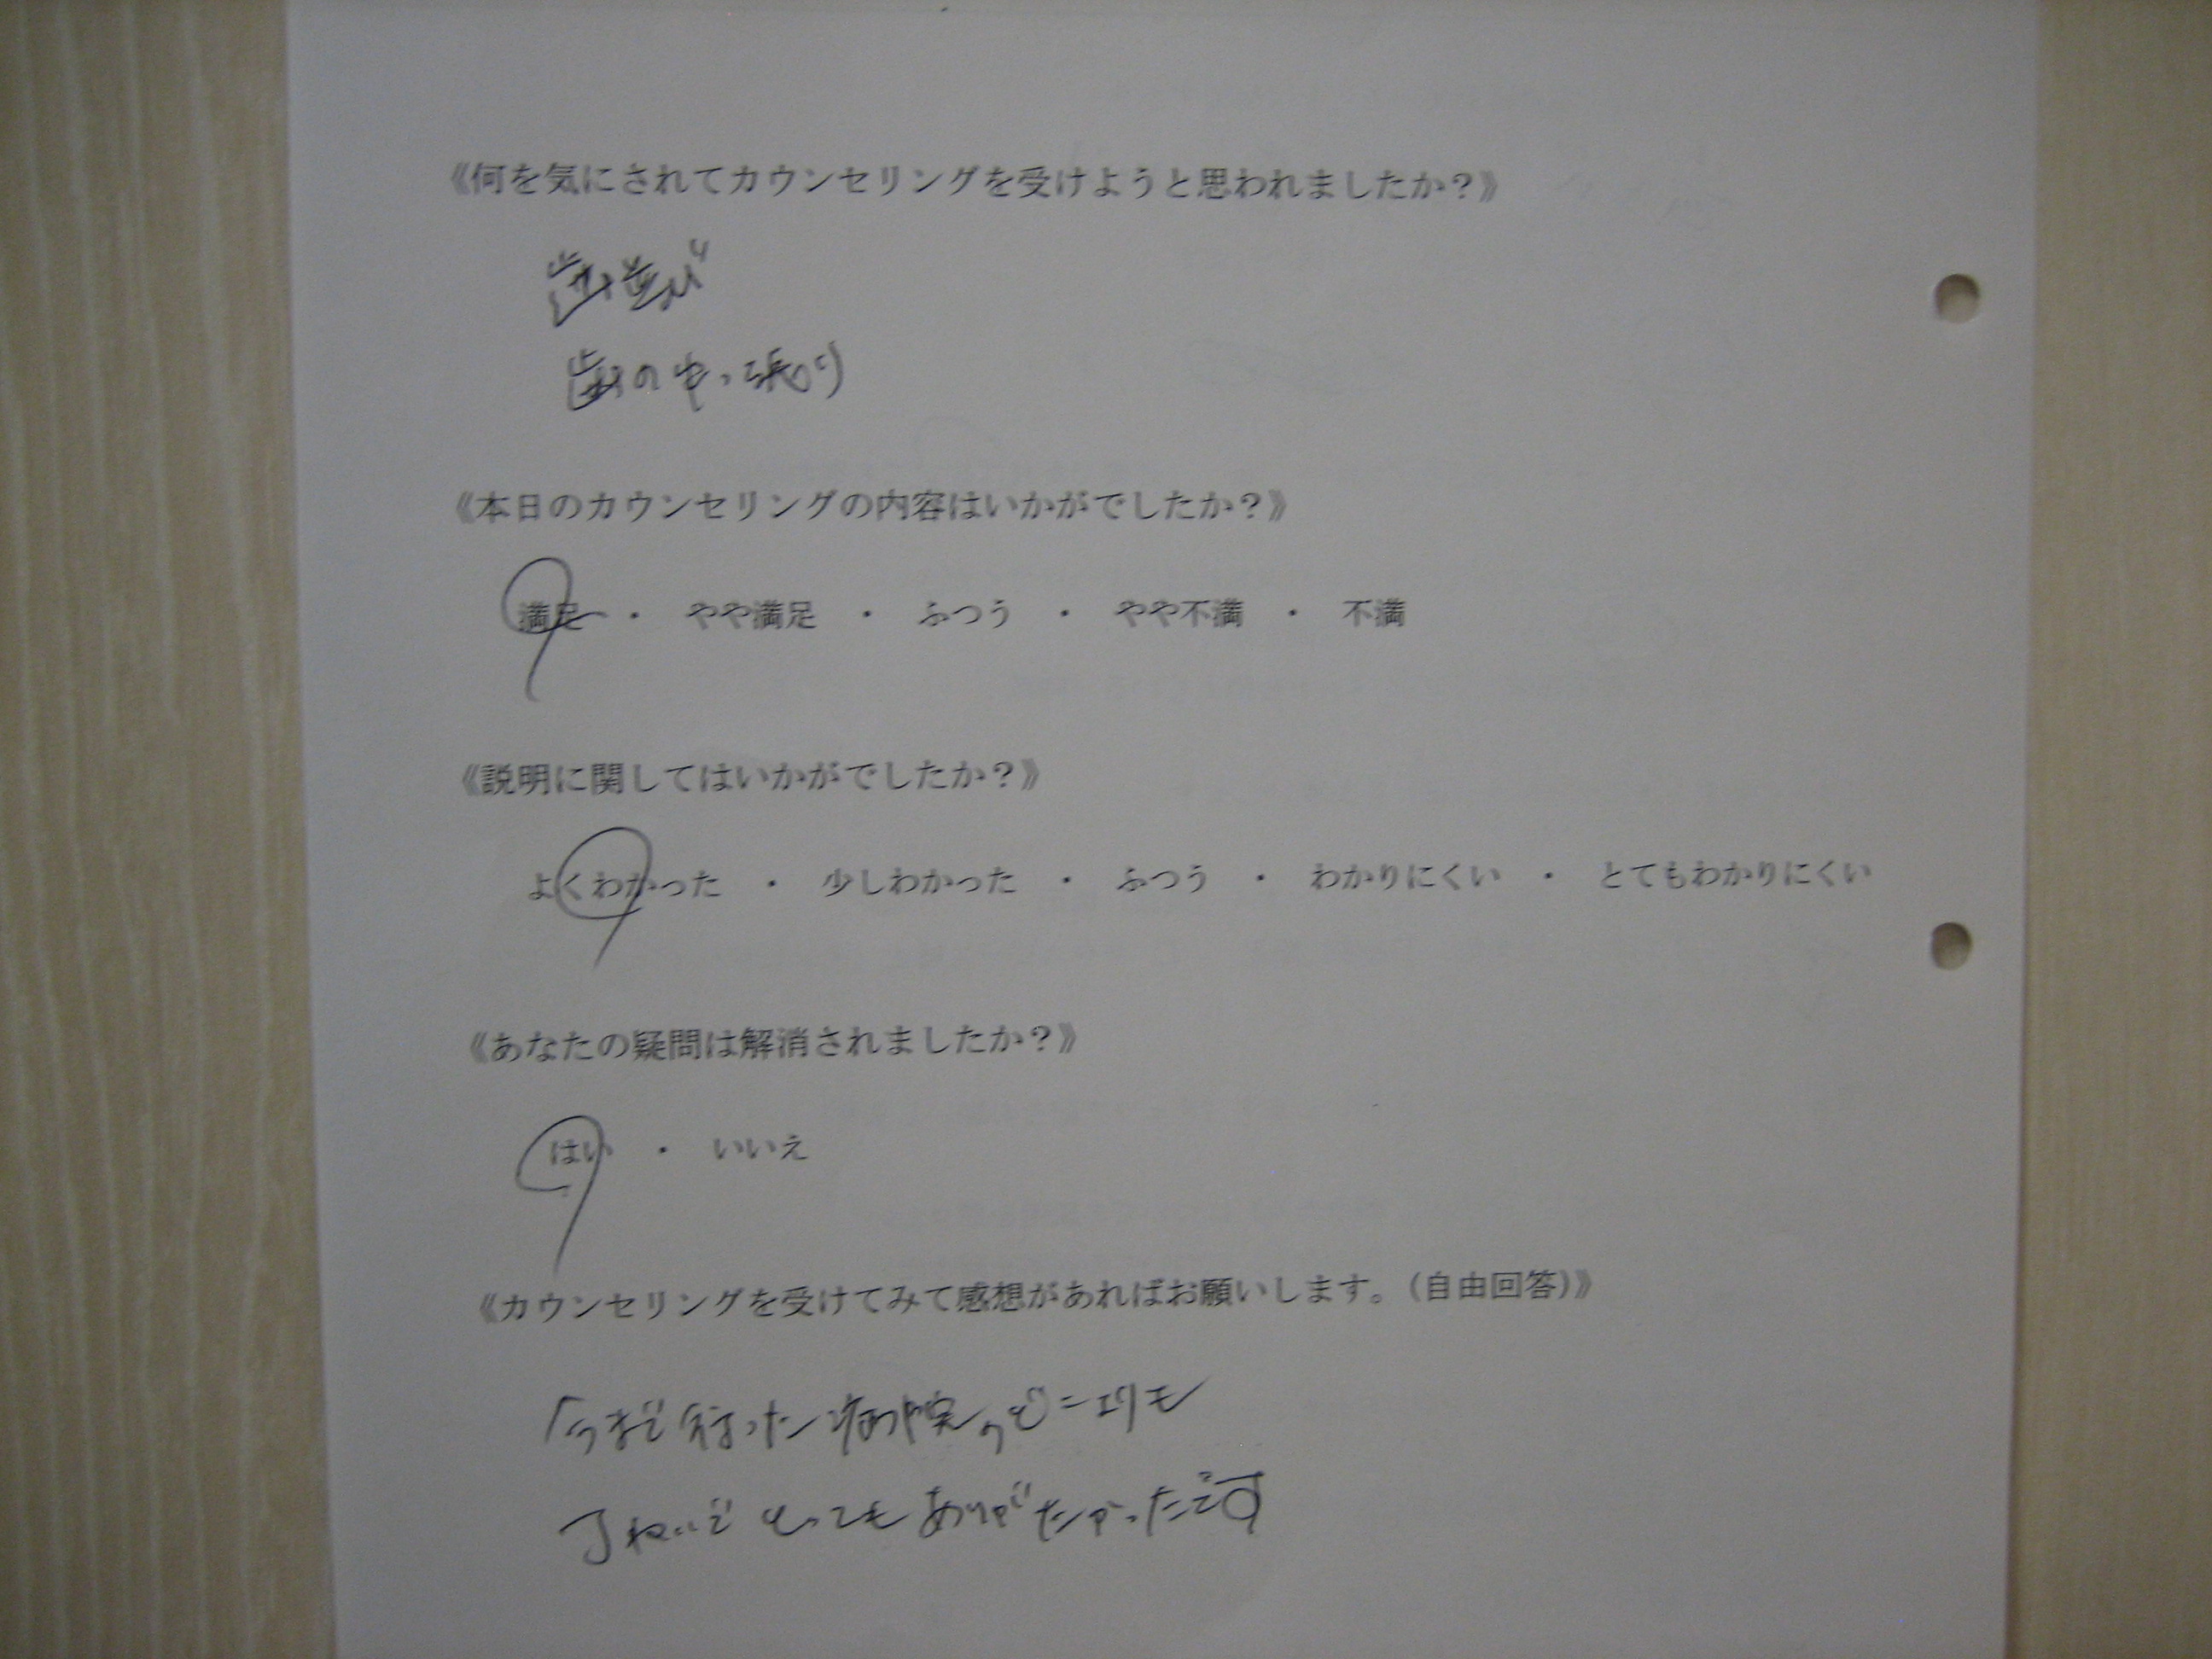 《何を気にされてカウンセリングを受けようと思われましたか？》
歯並び
歯の出っ張り
《本日のカウンセリングの内容はいかがでしたか？》
満足 ・ やや満足 ・ ふつう ・ やや不満 ・ 不満
《説明に関してはいかがでしたか？》
よくわかった ・ 少しわかった ・ ふつう ・ わかりにくい ・ とてもわかりにくい
《あなたの疑問は解消されましたか？》
はい ・ いいえ
《カウンセリングを受けてみて感想があればお願いします。（自由回答）》
今まで行った病院のどこよりも
丁ねいで とっても ありがたかったです